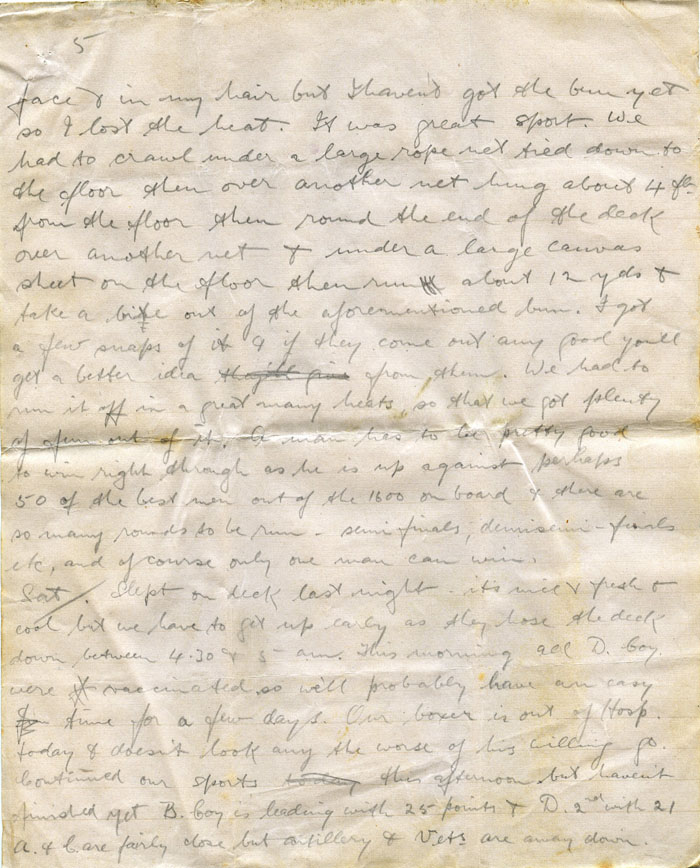 5
face & in my hair but I havent got the bun yet
so I lost the heat. It was great sport. We
had to crawl under a large rope net tied down to
the floor then over another net hung about 4 ft
from the floor then round the end of the deck
over another net & under a large canvas
sheet on the floor then run about 12 yds &
take a bite out of the aforementioned bun. I got
a few snaps of it & if they come out any good you'll
get a better idea from them. We had to
run it off in a great many heats, so that we got plenty
of fun out of it. A man has to be pretty good
to win right through as he is up against perhaps
50 of the best men out of the 1600 on board & there are
so many rounds to be run - semi finals, demisemi-finals
etc, and of course only one man can win.
Sat. Slept on deck last night - its nice & fresh &
cool but we have to get up early as they hose the deck
down between 4.30 & 5 am. This morning all D. Coy.
were vaccinated so we'll probably have an easy
time for a few days. Our boxer is out of Hosp.
today & doesn't look any the worse of his go.
Continued our sports today this afternoon but haven't
finished yet B. Coy is leading with 25 points & D. 2nd with 21
A. & C. are fairly close but artillery & Vets are away down.